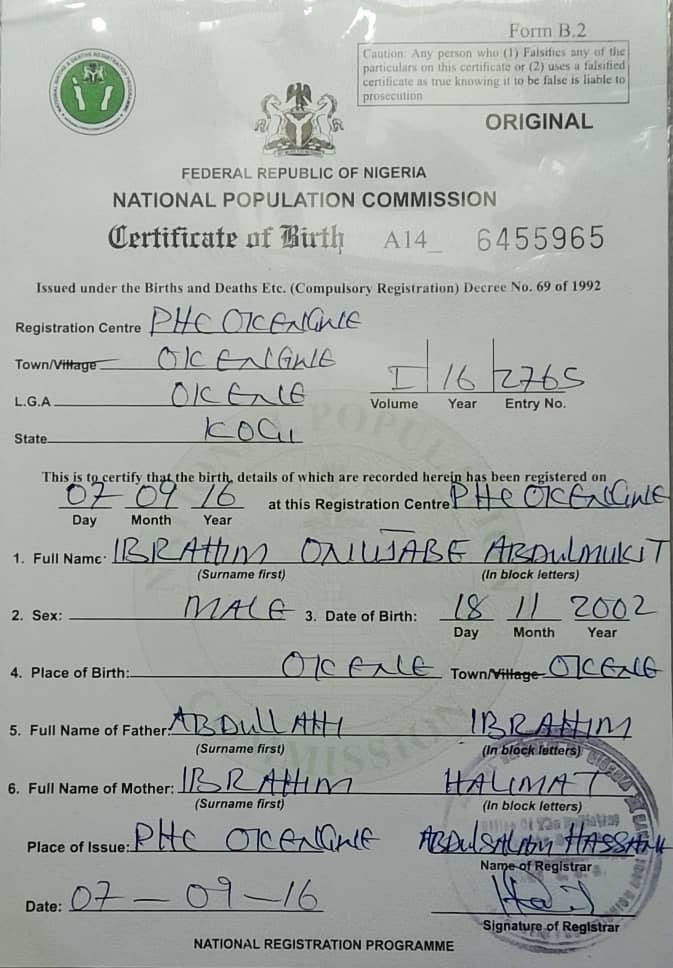 Form B.2
Caution: Any person who (1) Falsifies any of the
particulars on this certificate or (2) uses a falsified
certificate as true knowing it to be false is liable to
prosecution
ORIGINAL
FEDERAL REPUBLIC OF NIGERIA
NATIONAL POPULATION COMMISSION
Certificate of Birth A14_ 6455965
Issued under the Births and Deaths Etc. (Compulsory Registration) Decree No. 69 of 1992
Registration Centre PHC OKENGWE
Town/Village OKENGWE
L.G.A OKENE I 16 2765
Volume Year Entry No.
State KOGI
This is to certify that the birth, details of which are recorded herein has been registered on
07 09 16 at this Registration Centre PHC OKENGWE
Day Month Year
1. Full Name: IBRAHIM ONIWABE ABDULMUKIT
(Surname first) (In block letters)
2. Sex: MALE 3. Date of Birth: 18 11 2002
Day Month Year
4. Place of Birth: OKENE Town/Village OKENE
5. Full Name of Father: ABDULLAHI IBRAHIM
(Surname first) (In block letters)
6. Full Name of Mother: IBRAHIM HALIMAT
(Surname first) (In block letters)
Place of Issue: PHC OKENGWE ABDULSALAM HASSANA
Name of Registrar
Date: 07-09-16
Signature of Registrar
NATIONAL REGISTRATION PROGRAMME